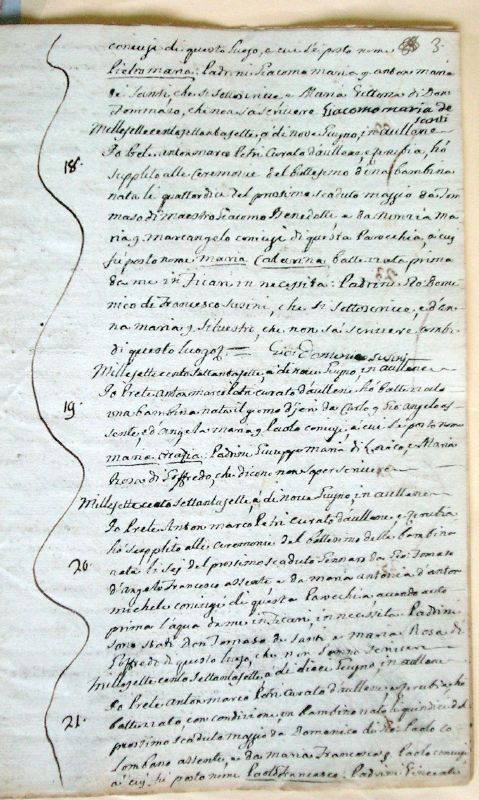 3.
coniugi di questo luogo, e cui si è posto nome
Pietro maria: Padrini Giacomo maria q. anton maria
de Santi, che si sottoscrive e Maria Vittoria di Don
Tommaso, che non sa scrivere Giacomo maria de
Santi
Millesettecentosettantasette, a di nove Giugno, in aullene
18.
Io Prete Anton marco Petri Curato d'aullene, e Zerubia, hò
supplito alle Ceremonie del battesimo d'una bambina
nata li quattordici del prossimo scaduto maggio da Tom
maso di maestro Giacomo Benedetti e da Ninuria ma
ria q. marcangelo coniugi di questa Parochia, a cui
si è posto nome maria Catarina battezzata prima
da me in in necessità: Padrini Gio Dome
nico di Francesco Susini, che si sottoscrive, e d'an
na maria q. Silvestro, che non sà scrivere ambi
di questo luogo = Gio: Domenico Susini
Millesettecentosettantasette, a di nove Giugno, in aullene
19.
Io Prete Anton marco Petri curato d'aullene, hò battezzato
una bambina nata il giorno d'jeri da Carlo q. Gio Angelo as
sente e d'angela maria q. Paolo coniugi a cui si è posto nome
maria Grazia: Padrini Giuseppe maria di e Maria
Rosa di Goffredo, che dicono non saper scrivere
Millesettecento Settantasette, a di nove Giugno, in aullene
20.
Io Prete Anton marco Petri curato d'aullene, e Zerubia
hò supplito alle ceremonie del battesimo della bambina
nata li sei del prossimo scaduto Gennaro da Gio Tomaso
d'angelo Francesco assente e da maria antonia d'anton
michele coniugi di questa Parochia avendo auto
prima l'aqua da me in in necessità Padrini
sono stati Don Tomaso de Santi e maria Rosa di
Goffredo di questo luogo, che non sanno scrivere
Millesettecento Settantasette, a di dieci Giugno in aullene
21.
Io Prete Anton marco Petri Curato d'aullene, e Zerubia, hò
battezzato con condizione un bambino nato li quindici del
prossimo scaduto maggio da Domenico di Gio: Paolo Co
lombano assente, e da maria Francesca q. Paolo coniugi
a cui si è posto nome Paolo Francesco: Padrini